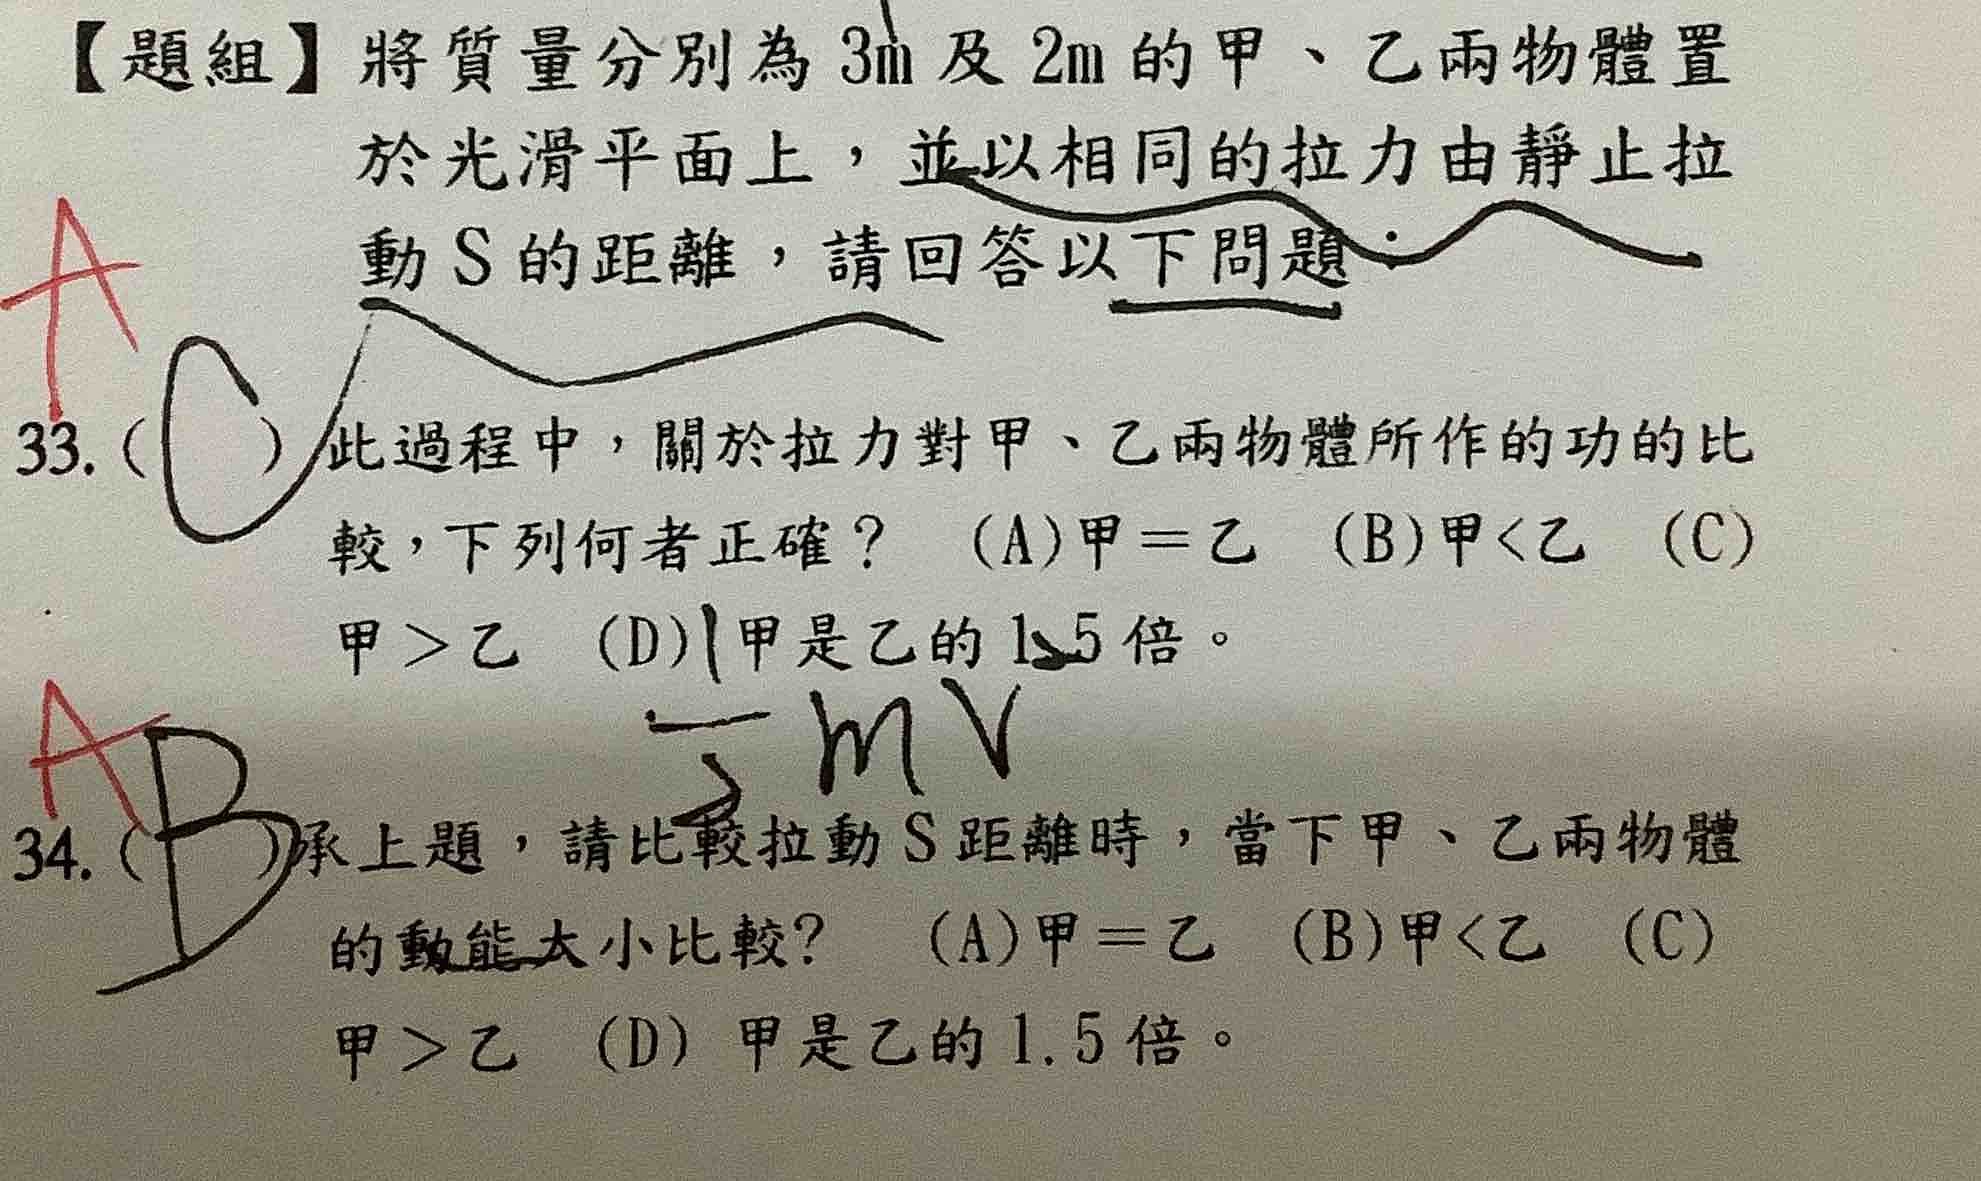 【題組】將質量分別為 3m 及 2m 的甲、乙兩物體置
於光滑平面上，並以相同的拉力由靜止拉
動 S 的距離，請回答以下問題：
A
33.( C )此過程中，關於拉力對甲、乙兩物體所作的功的比
較，下列何者正確？ (A)甲＝乙 (B)甲<乙 (C)
甲＞乙 (D)甲是乙的 1.5 倍。
1/2 mv
A
34.( B )承上題，請比較拉動 S 距離時，當下甲、乙兩物體
的動能大小比較? (A)甲＝乙 (B)甲<乙 (C)
甲＞乙 (D) 甲是乙的 1.5 倍。